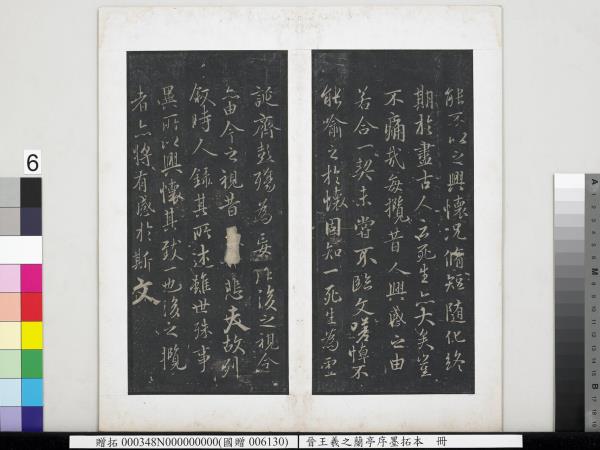 能不以之興懷況脩短隨化終
期於盡古人云死生亦大矣豈
不痛哉每攬昔人興感之由
若合一契未嘗不臨文嗟悼不
能喻之於懷固知一死生為虛
誕齊彭殤為妄作後之視今
亦由今之視昔悲夫故列
敘時人錄其所述雖世殊事
異所以興懷其致一也後之攬
者亦將有感於斯文
6
贈拓 000348N000000000(國贈 006130)
晉王羲之蘭亭序墨拓本 冊
A
M
B